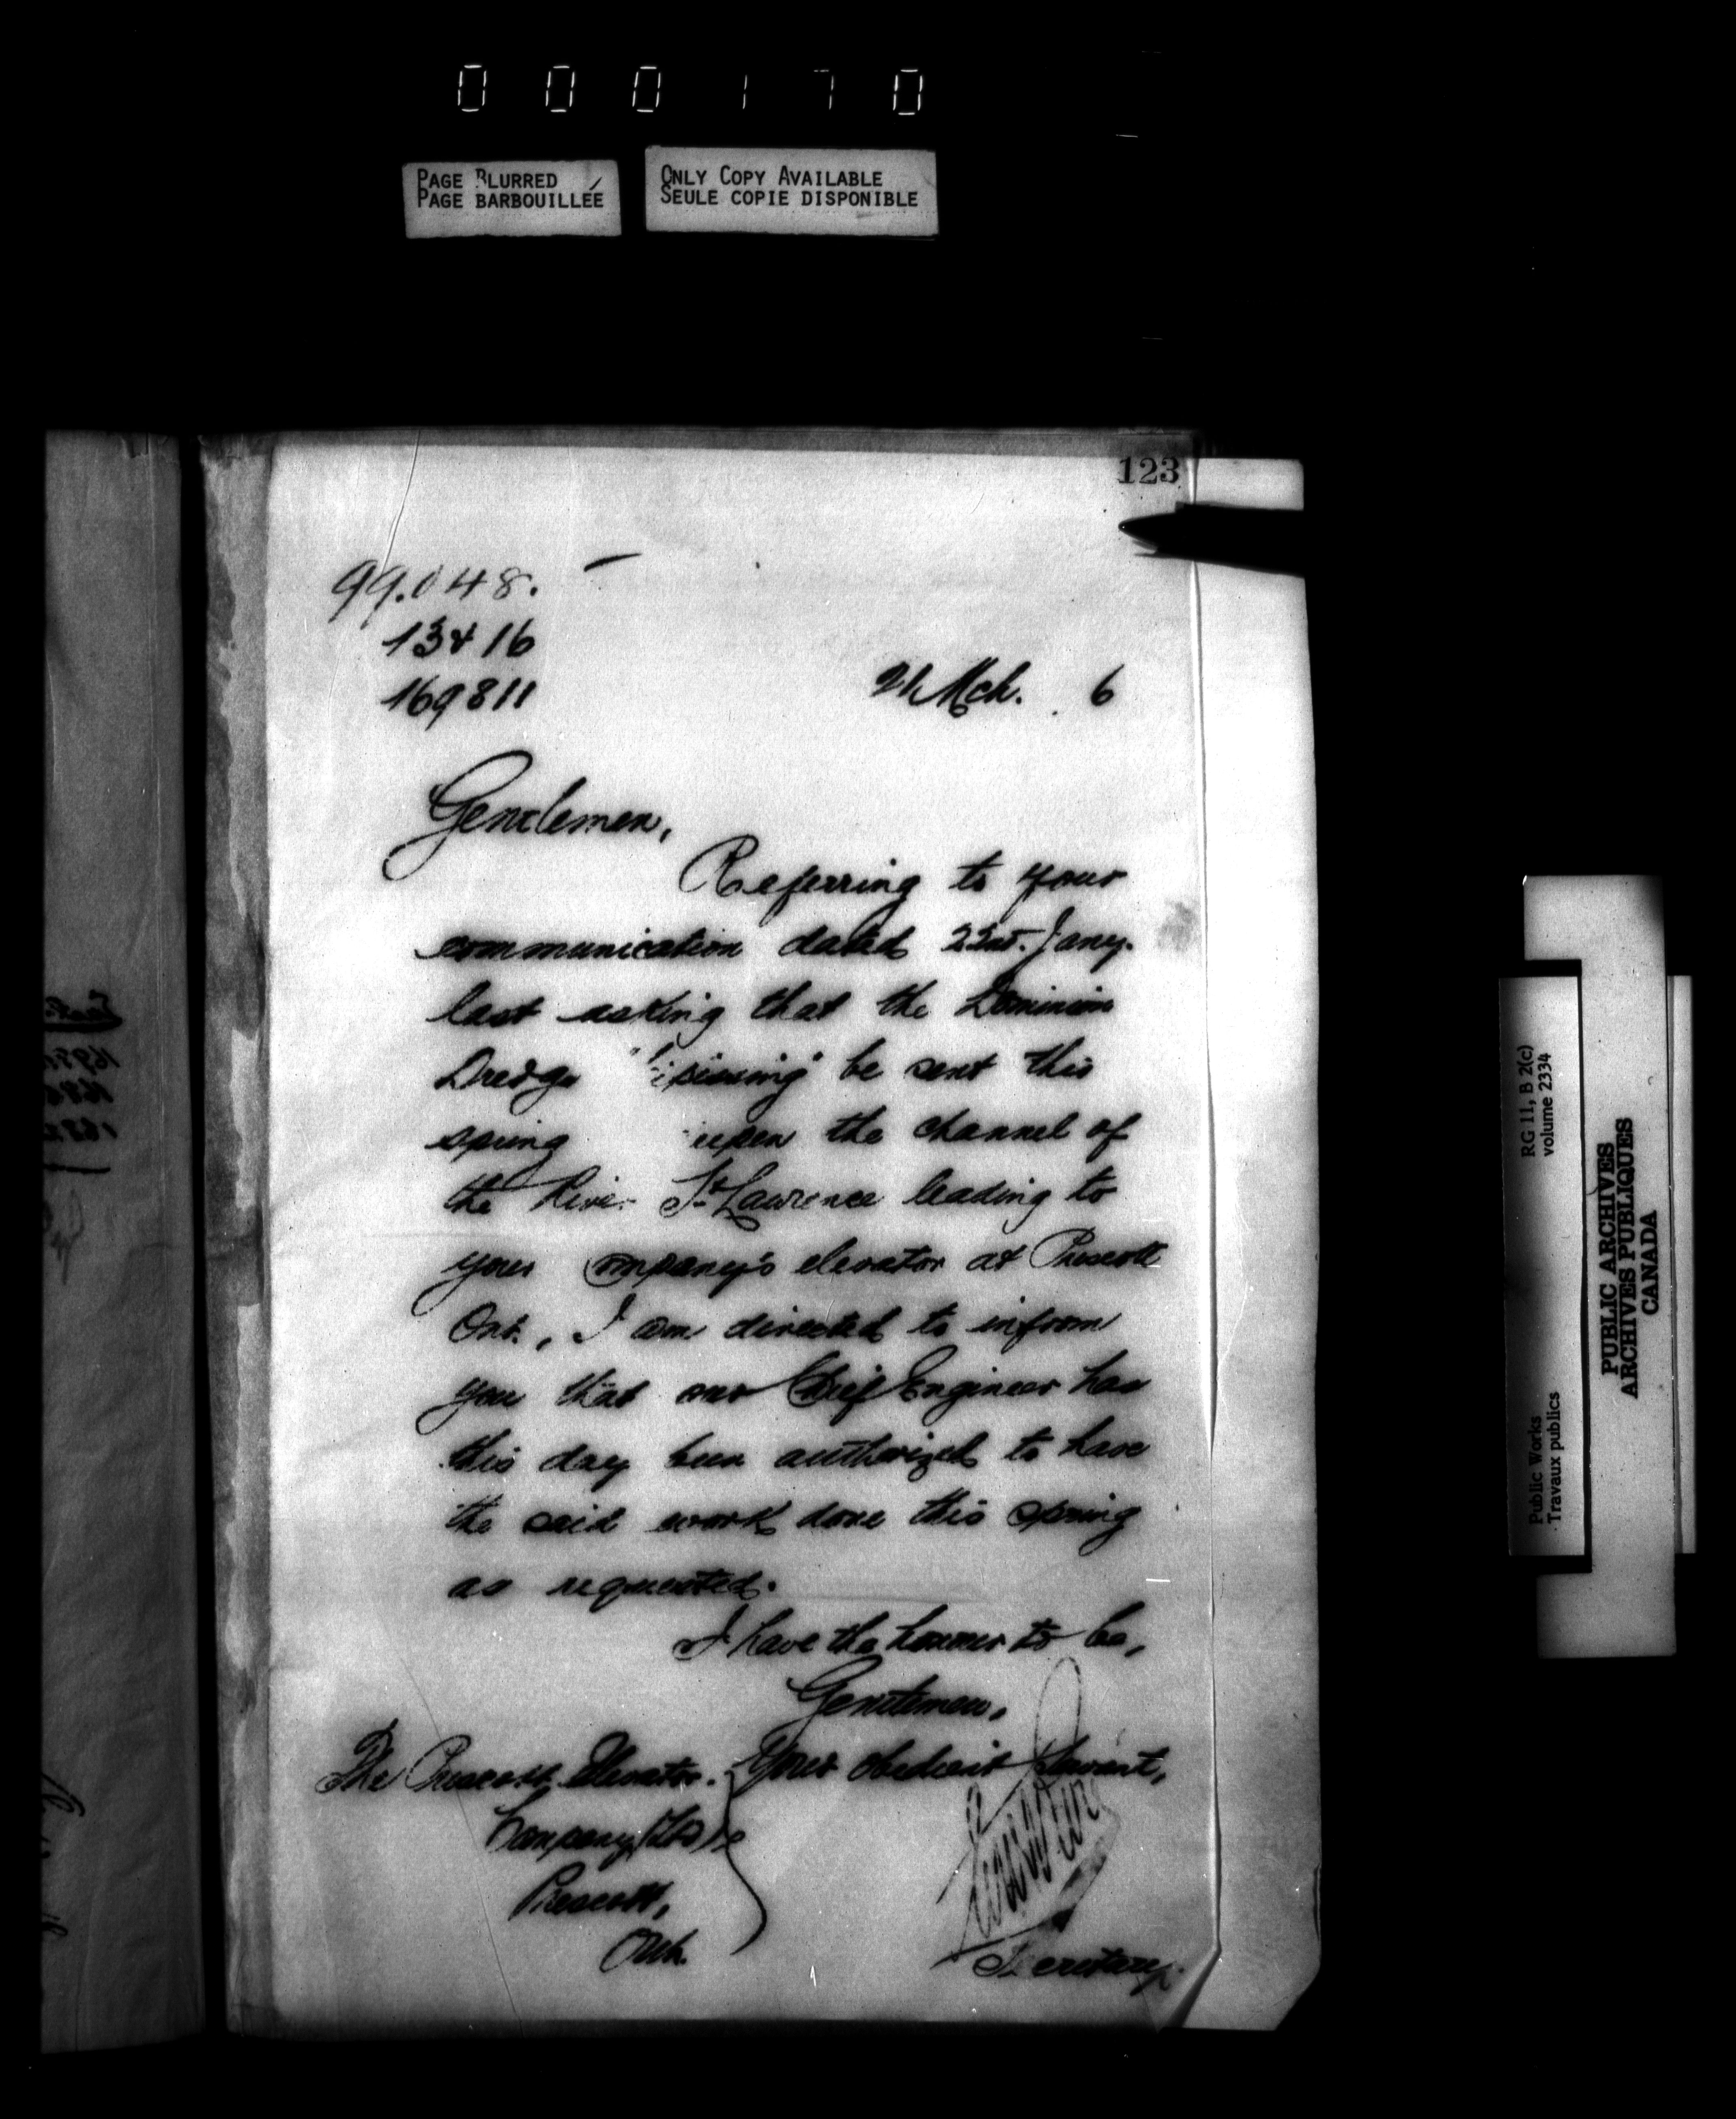 0 0 0 1 7 0
PAGE BLURRED
PAGE BARBOUILLÉE
ONLY COPY AVAILABLE
SEULE COPIE DISPONIBLE
123
99.048.
13416
169811
Mch. 6
Gentlemen,
Referring to your
communication dated 22nd. Jany.
last asking that the Dominion
Dredge be sent this
spring upon the channel of
the River St. Lawrence leading to
your ompany's elevator at Prescott
Ont., I am directed to inform
you that our Chief Engineer has
this day been authorized to have
the said work done this spring
as requested.
I have the honour to be,
Gentlemen,
Your obedient Servant,
The Prescott Elevator
Company Ltd
Prescott,
Ont.
Secretary.
RG 11, B 2(c)
volume 2334
Public Works
Travaux publics
PUBLIC ARCHIVES
ARCHIVES PUBLIQUES
CANADA